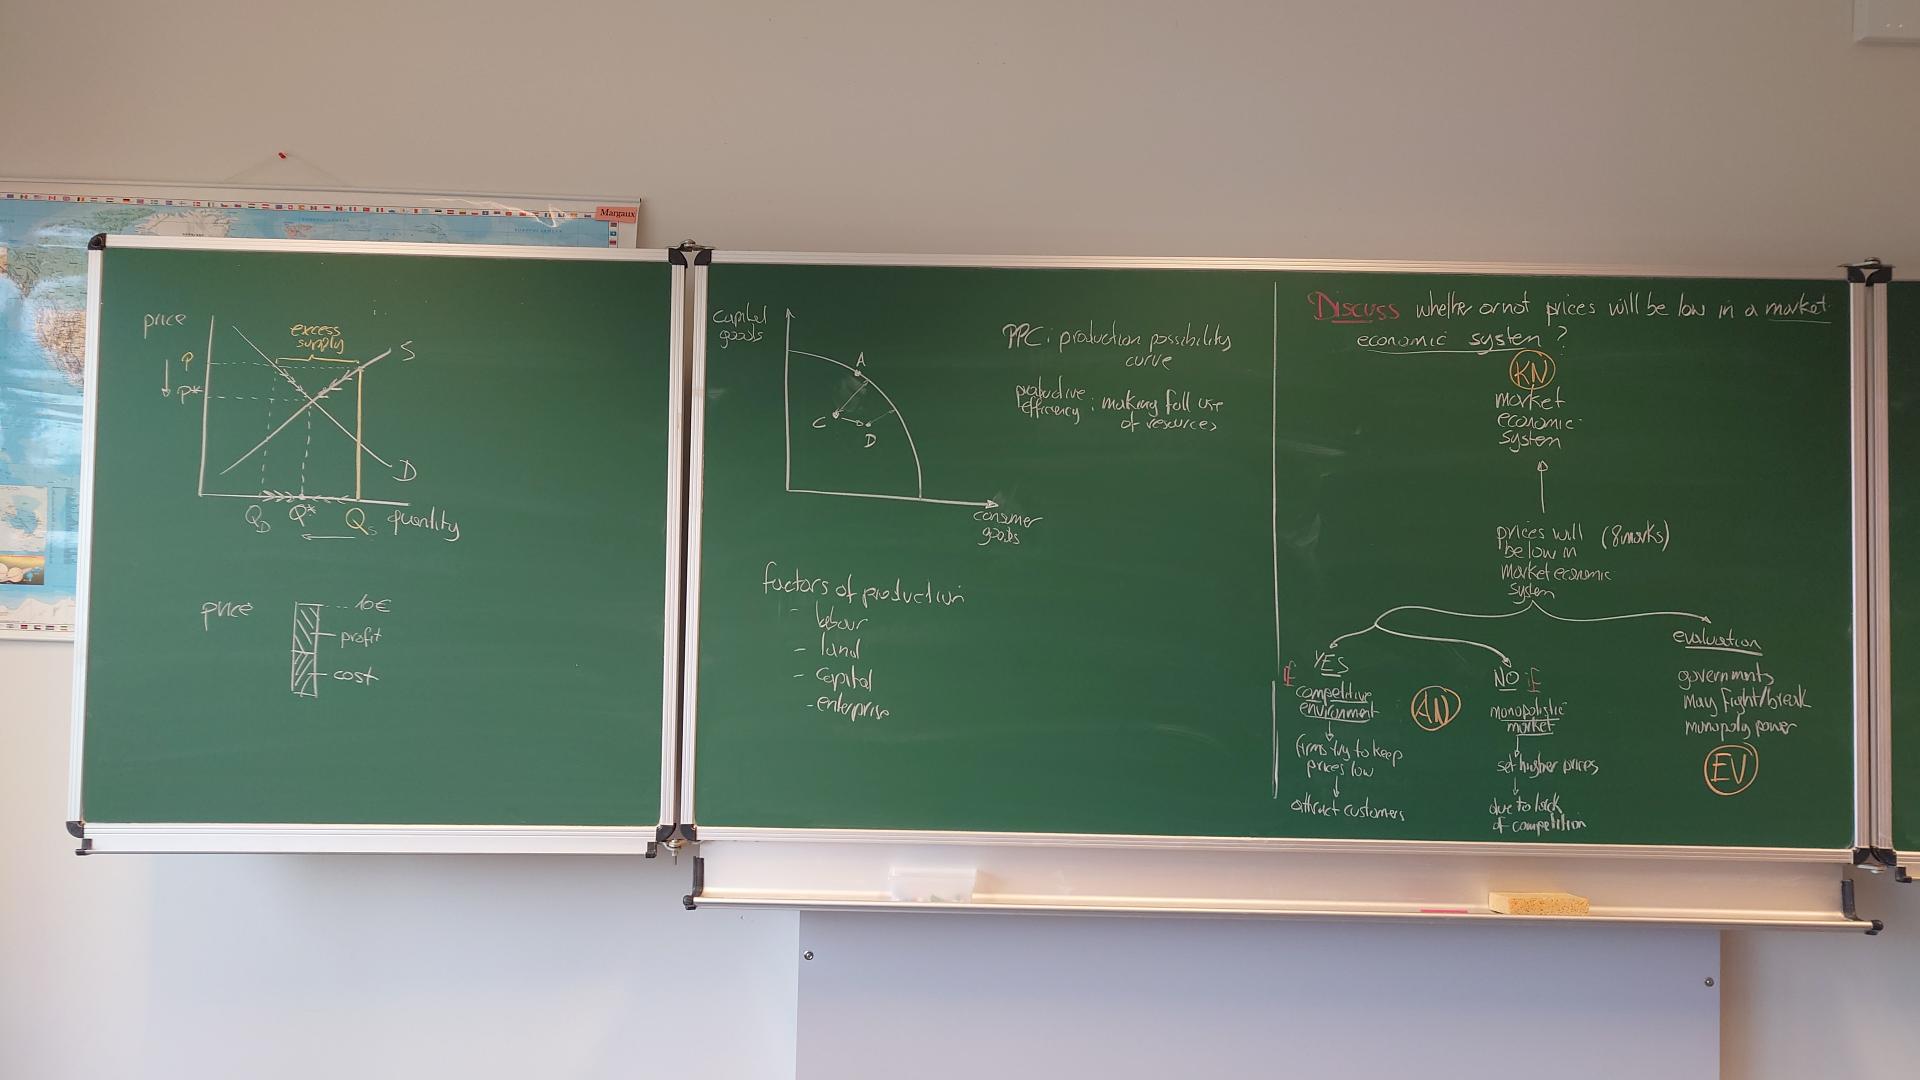 Margaux
price
excess
supply
S
P
P*
D
QD Q* Qs quantity
price
10€
profit
cost
capital
goods
A
C
D
consumer
goods
PPC : production possibility
curve
productive
efficiency : making full use
of resources
factors of production
- labour
- land
- capital
- enterprise
Discuss whether or not prices will be low in a market
economic system ?
KN
market
economic
system
prices will (8 marks)
be low in
market economic
system
YES
if
competitive
environment
firms try to keep
prices low
attract customers
AN
NO if
monopolistic
market
set higher prices
due to lack
of competition
evaluation
governments
may fight/break
monopoly power
EV